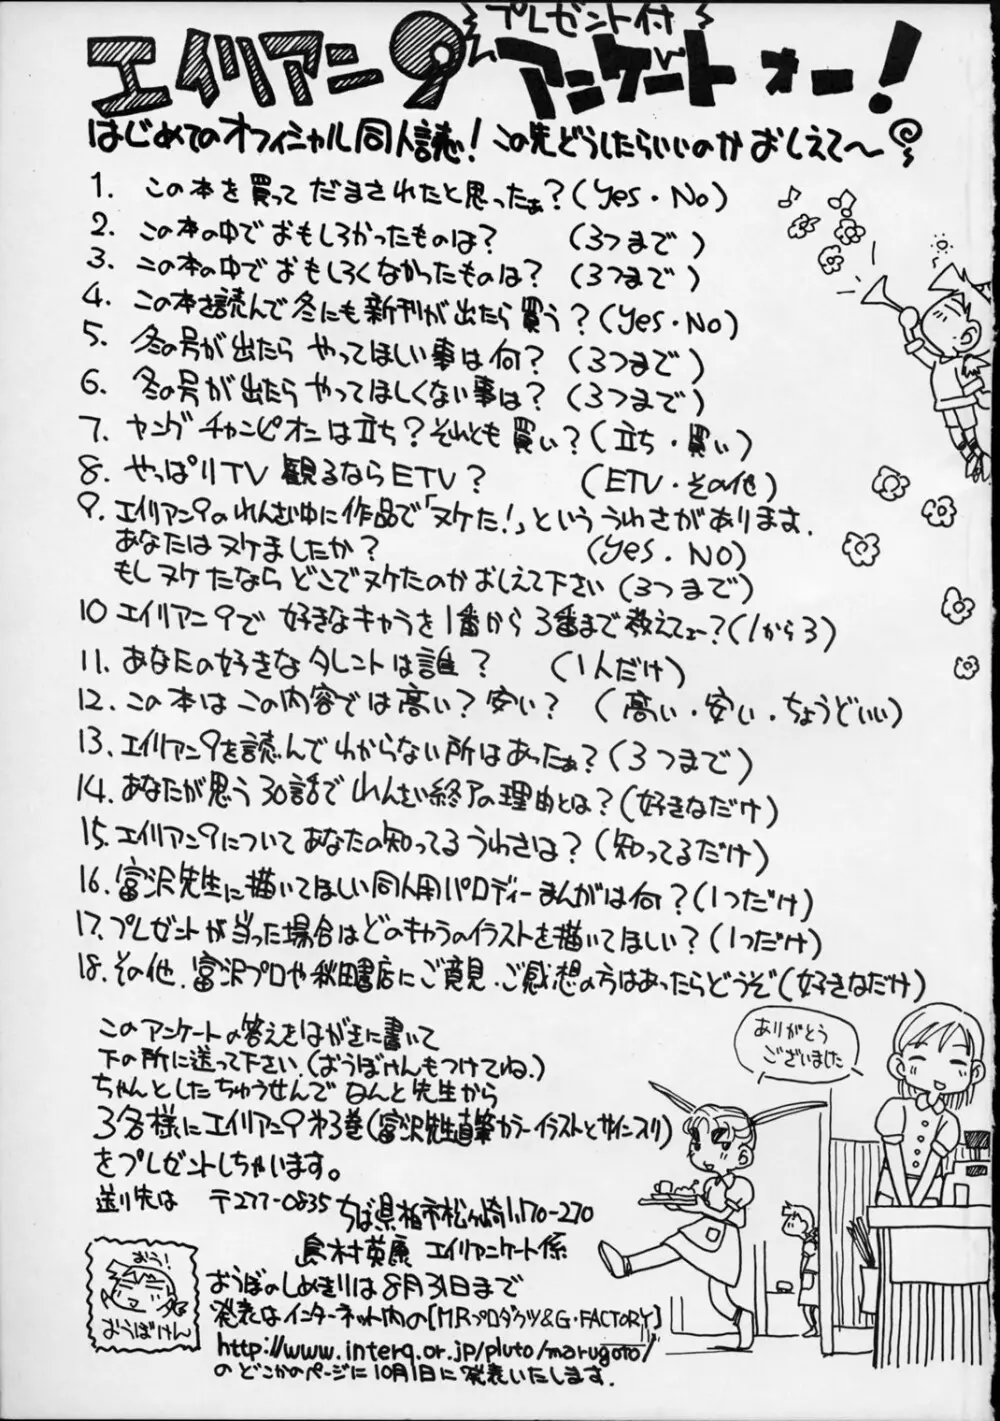 プレゼント付
エイリアン9 アンケートォー!
はじめてのオフィシャル同人誌! この先どうしたらいいのかおしえて〜
1. この本を買って だまされたと思ったぁ?(Yes・No)
2. この本の中でおもしろかったものは? (3つまで)
3. この本の中でおもしろくなかったものは? (3つまで)
4. この本を読んで冬にも新刊が出たら買う?(Yes・No)
5. 冬の号が出たら やってほしい事は何?(3つまで)
6. 冬の号が出たら やってほしくない事は?(3つまで)
7. ヤングチャンピオンは立ち?それとも買い?(立ち・買い)
8. やっぱりTV 観るならETV? (ETV・その他)
9. エイリアン9のれんさい中に作品で「ヌケた!」といううわさがあります.
あなたはヌケましたか? (Yes・NO)
もしヌケたなら どこでヌケたのかおしえて下さい(3つまで)
10 エイリアン9で 好きなキャラを1番から3番まで教えてェー?(1から3)
11. あなたの好きなタレントは誰? (1人だけ)
12. この本はこの内容では高い?安い? (高い・安い・ちょうどいい)
13. エイリアン9を読んでわからない所はあったぁ?(3つまで)
14. あなたが思う30話でれんさい終了の理由とは?(好きなだけ)
15. エイリアン9についてあなたの知ってるうわさは?(知ってるだけ)
16. 富沢先生に描いてほしい同人用パロディーまんがは何?(1つだけ)
17. プレゼントが当った場合はどのキャラのイラストを描いてほしい?(1つだけ)
18. その他、富沢プロや秋田書店にご意見・ご感想の方はあったらどうぞ(好きなだけ)
このアンケートの答えをはがきに書いて
下の所に送って下さい.(おうぼけんもつけてね.)
ちゃんとしたちゅうせんでなんと先生から
3名様にエイリアン9第3巻(富沢先生直筆カラーイラストとサイン入り)
をプレゼントしちゃいます。
送り先は 〒277-0835 ちば県柏市松ヶ崎1170-270
島村英康 エイリアンケート係
おうぼのしめきりは8月31日まで
発表はインターネット内の[MRプロダクツ&G・FACTORY]
http://www.interq.or.jp/pluto/marugoto/
のどこかのページに10月1日に発表いたします.
ありがとう
ございました
おう!
おうぼけん